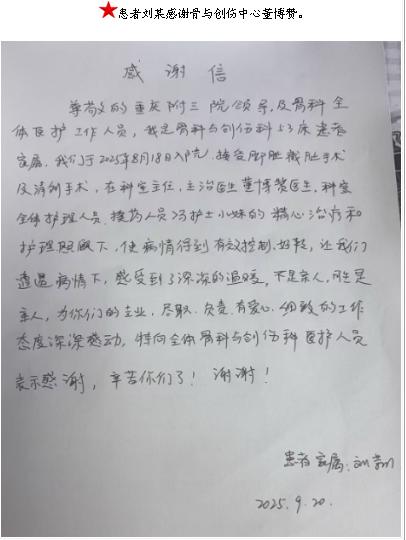 ★患者刘某感谢骨与创伤中心董博赞。
感谢信
尊敬的重庆附三院领导，及骨科全
体医护工作人员，我是骨科与创伤科53床患者
家属。我们于2025年8月18日入院。接受脚脏截肢手术
及清创手术，在科室主任，主治医生董博赞医生，科室
全体护理人员。换药人员冯护士小妹的精心治疗和
护理照顾下，使病情得到有效控制。好转，让我们
遭遇病情下，感受到了深深的温暖，不是亲人，胜是
亲人，为你们的专业，尽职。负责。有爱心，细致的工作
态度深深感动，特向全体骨科与创伤科医护人员
表示感谢，辛苦你们了！谢谢！
患者家属：刘
2025.9.20.